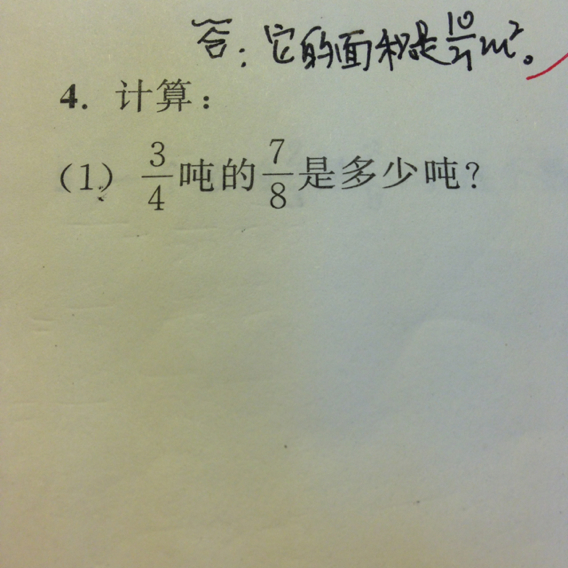 答：它的面积是10/21m²。
4. 计算：
(1) 3/4吨的7/8是多少吨?